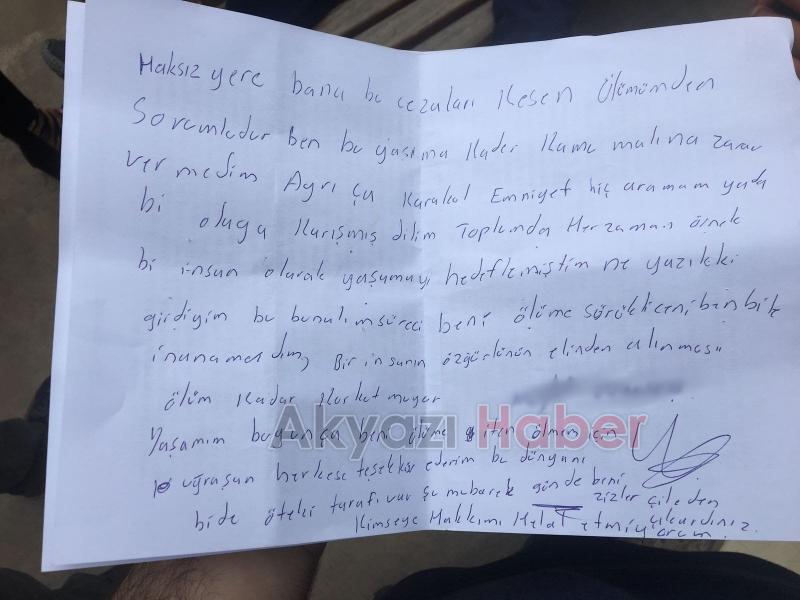 Haksız yere bana bu cezaları kesen ölümümden
Sorumludur ben bu yaşıma kader kamu malına zarar
vermedim Ayrı ça karakol Emniyet hiç aramam yada
bi oluga karışmış dilim Toplumda Herzaman örnek
bi insan olarak yaşamayı hedeflemiştim ne yazıkki
girdiğim bu bunalım süreci beni ölüme sürükliceni ben bile
inanamazdım, Bir insanın özgürlünün elinden alınması
ölüm kadar korkutmuyor
Yaşamım boyunca beni ölüme iten ölmem için
uğraşan herkese teşekkür ederim bu dünyanı
bide öteki tarafı var şu mubarek günde beni sizler çileden
çıkardınız.
Kimseye Hakkımı Helal etmiyorum.
Akyazı Haber